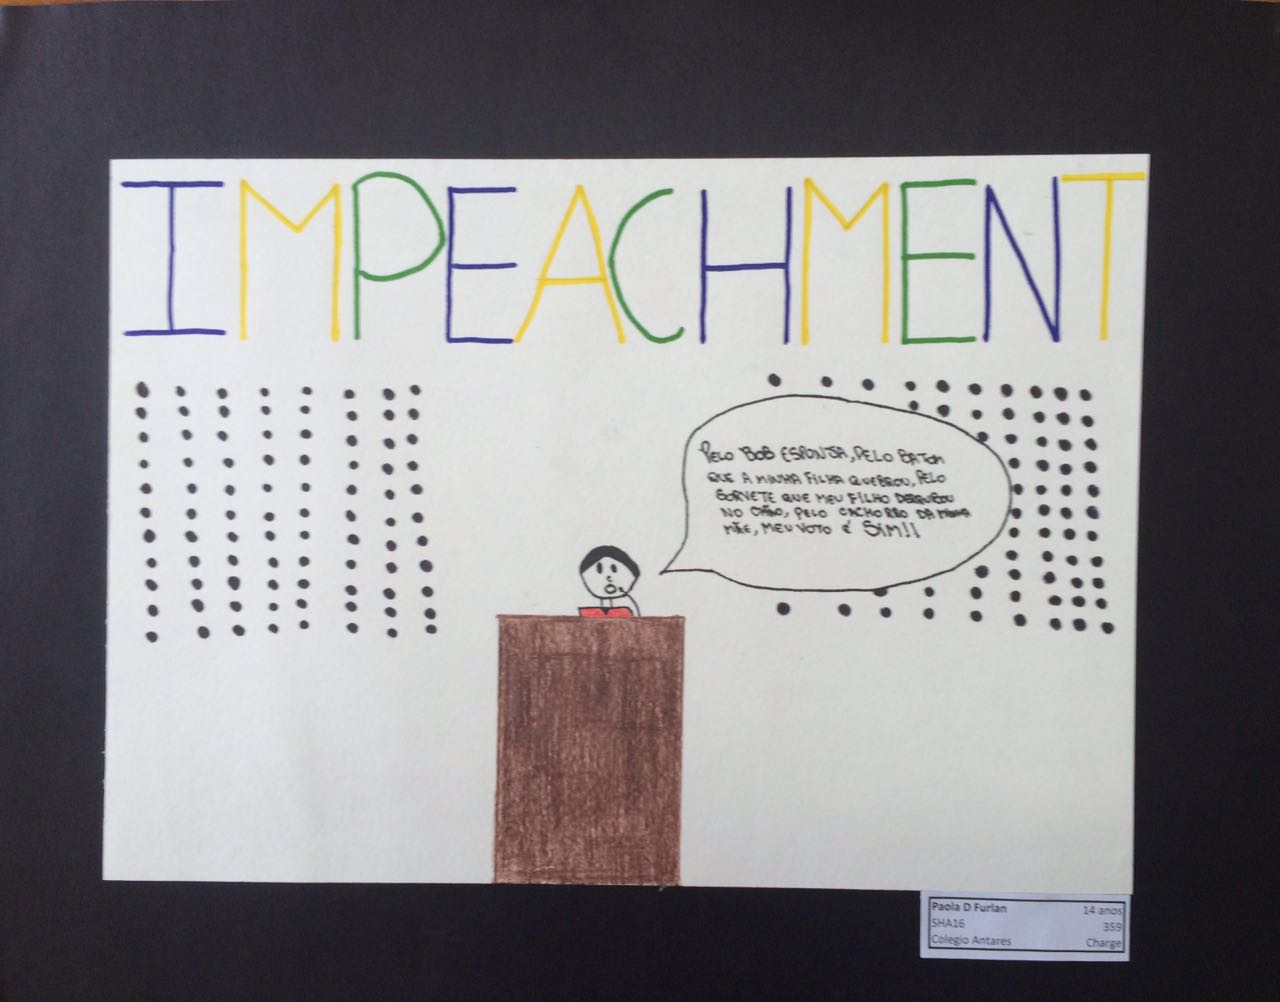 IMPEACHMENT
PELO BOB ESPONJA, PELO BATOM
QUE A MINHA FILHA QUEBROU, PELO
SORVETE QUE MEU FILHO DERRUBOU
NO CHÃO, PELO CACHORRO DA MINHA
MÃE, MEU VOTO É SIM!!
Paola D Furlan 14 anos
SHA16 359
Colegio Antares Charge